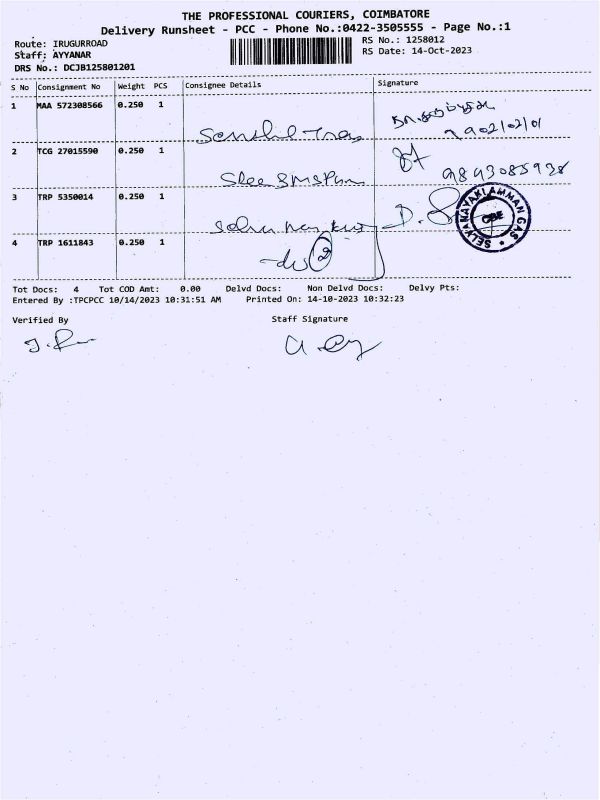 THE PROFESSIONAL COURIERS, COIMBATORE
Delivery Runsheet - PCC - Phone No.:0422-3505555 - Page No.:1
Route: IRUGURROAD
Staff: AYYANAR
DRS No.: DCJB125801201
RS No.: 1258012
RS Date: 14-Oct-2023
S No Consignment No Weight PCS Consignee Details Signature
1 MAA 572308566 0.250 1
2 TCG 27015590 0.250 1
3 TRP 5350014 0.250 1
SELVANAYAKIAMMAN GAS
CBE
4 TRP 1611843 0.250 1
Tot Docs: 4 Tot COD Amt: 0.00 Delvd Docs: Non Delvd Docs: Delvy Pts:
Entered By :TPCPCC 10/14/2023 10:31:51 AM Printed On: 14-10-2023 10:32:23
Verified By Staff Signature